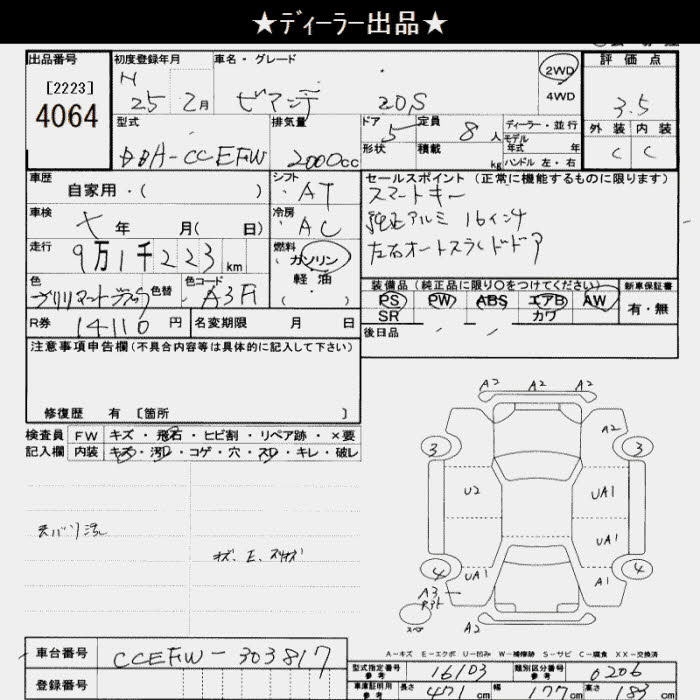 ★ディーラー出品★
出品番号
[2223]
4064
初度登録年月
H
25 2月
車名・グレード
ビアンテ 20S
2WD
4WD
評価点
3.5
外装 内装
C C
型式
DBA-CCEFW
排気量
2000cc
ドア 5
形状
定員 8 人
積載 kg
ディーラー・並行
モデル
年式 年
ハンドル 左・右
車歴
自家用・( )
シフト
AT
セールスポイント (正常に機能するものに限ります)
スマートキー
純正アルミ 16インチ
左右オートスライドドア
車検
年 月( 日)
冷房
AC
走行
9万1千223 km
燃料
ガソリン
軽油
( )
色
色替
色コード
A3F
装備品 (純正品に限り〇をつけてください)
PS PW ABS エアB AW
SR カワ
新車保証書
有・無
R券 14110 円
名変期限 月 日
後日品
注意事項申告欄 (不具合内容等は具体的に記入して下さい)
修復歴 有 〔箇所 〕
検査員
記入欄
FW キズ・飛石・ヒビ割・リペア跡・×要
内装 キズ・汚れ・コゲ・穴・スレ・キレ・破レ
A2 A2 A2
3 3
A2
U2 UA1
UA1
4 UA1 A1 4
A3
スペア
A2
A-キズ E-エクボ U-凹み W-補修跡 S-サビ C-腐食 XX-交換済
車台番号 CCEFW-303817
登録番号
型式指定番号 参考 16103
類別区分番号 参考 0206
車庫証明用 参考 長さ 471 cm 幅 177 cm 高さ 83 cm